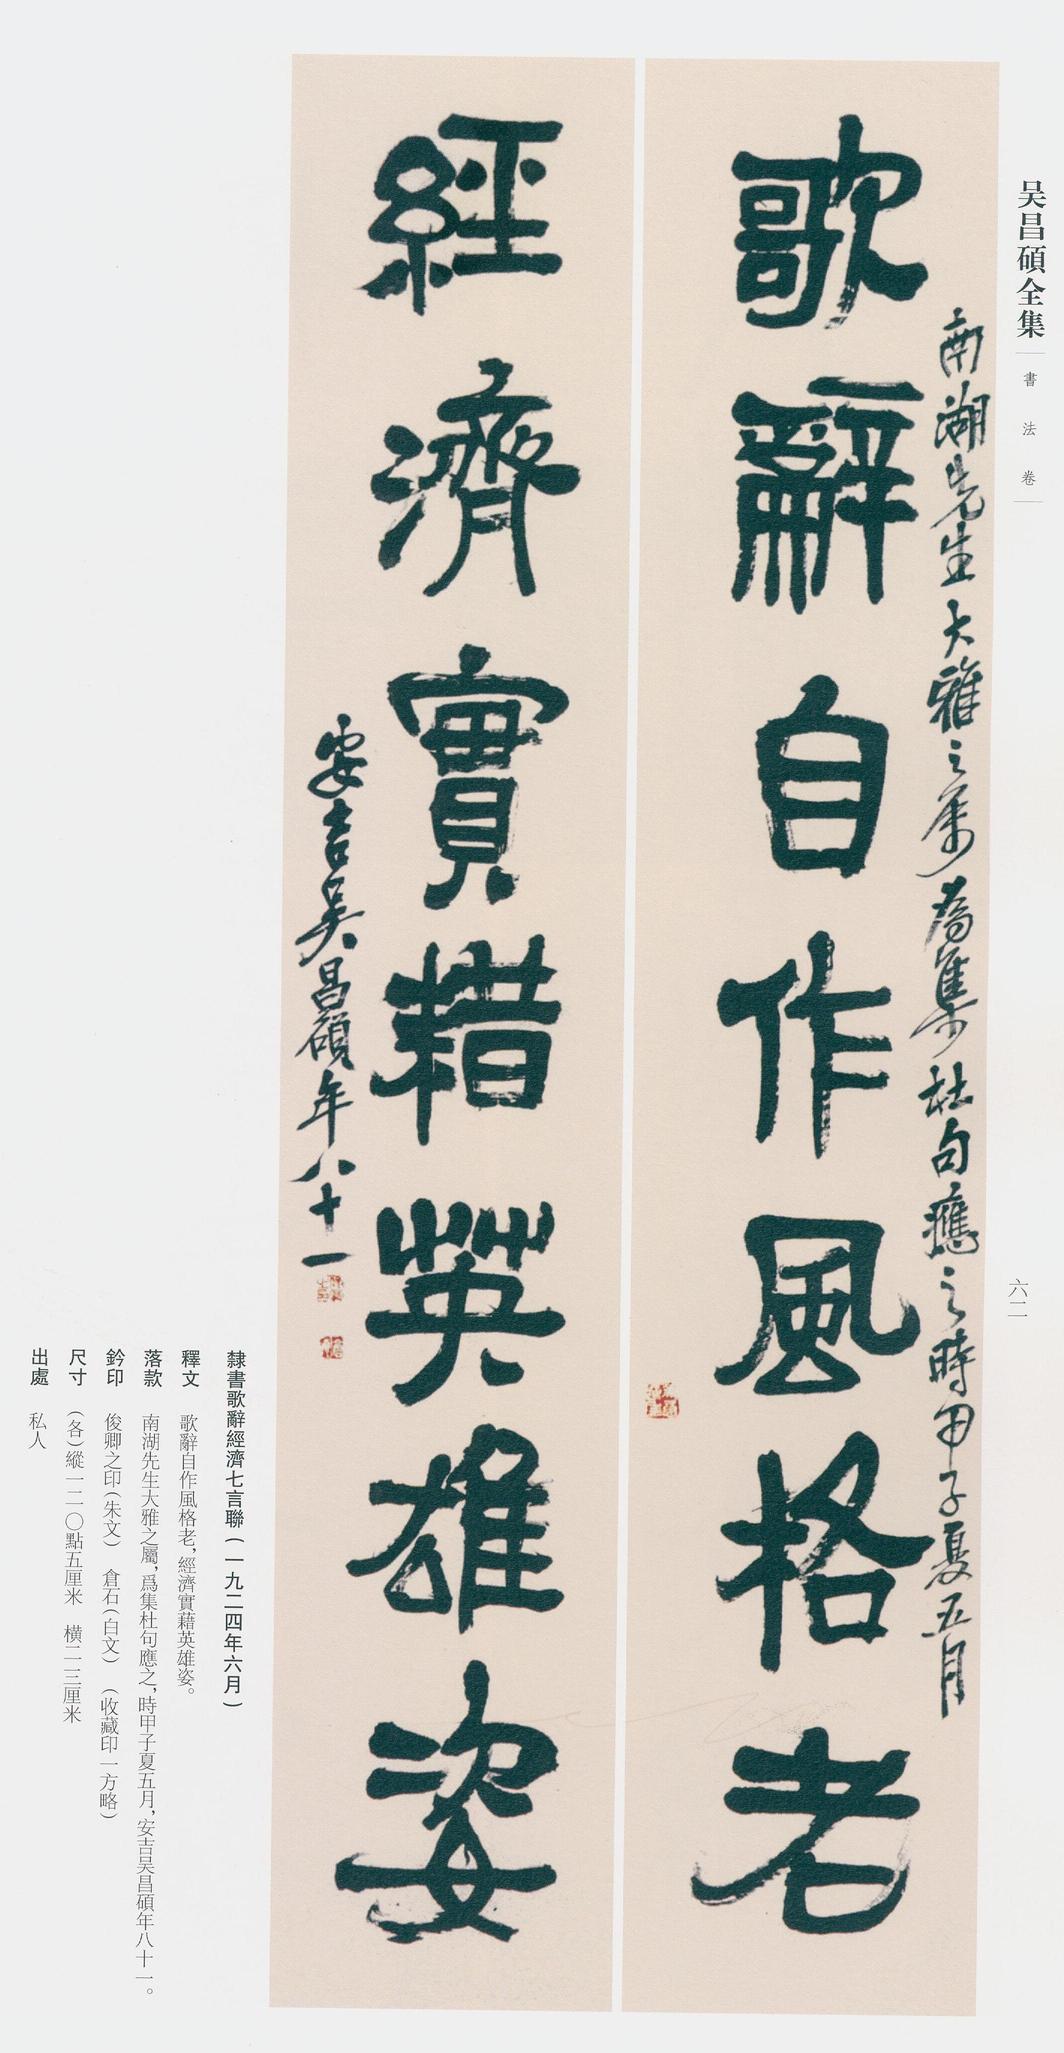 吴昌碩全集
書法卷
六二
南湖先生大雅之屬為集杜句應之時甲子夏五月
歌辭自作風格老
經濟實藉英雄姿
安吉吳昌碩年八十一
隸書歌辭經濟七言聯(一九二四年六月)
釋文 歌辭自作風格老,經濟實藉英雄姿。
落款 南湖先生大雅之屬,爲集杜句應之,時甲子夏五月,安吉吴昌碩年八十一。
鈐印 俊卿之印(朱文) 倉石(白文) (收藏印一方略)
尺寸 (各)縱一二〇點五厘米 橫二三厘米
出處 私人